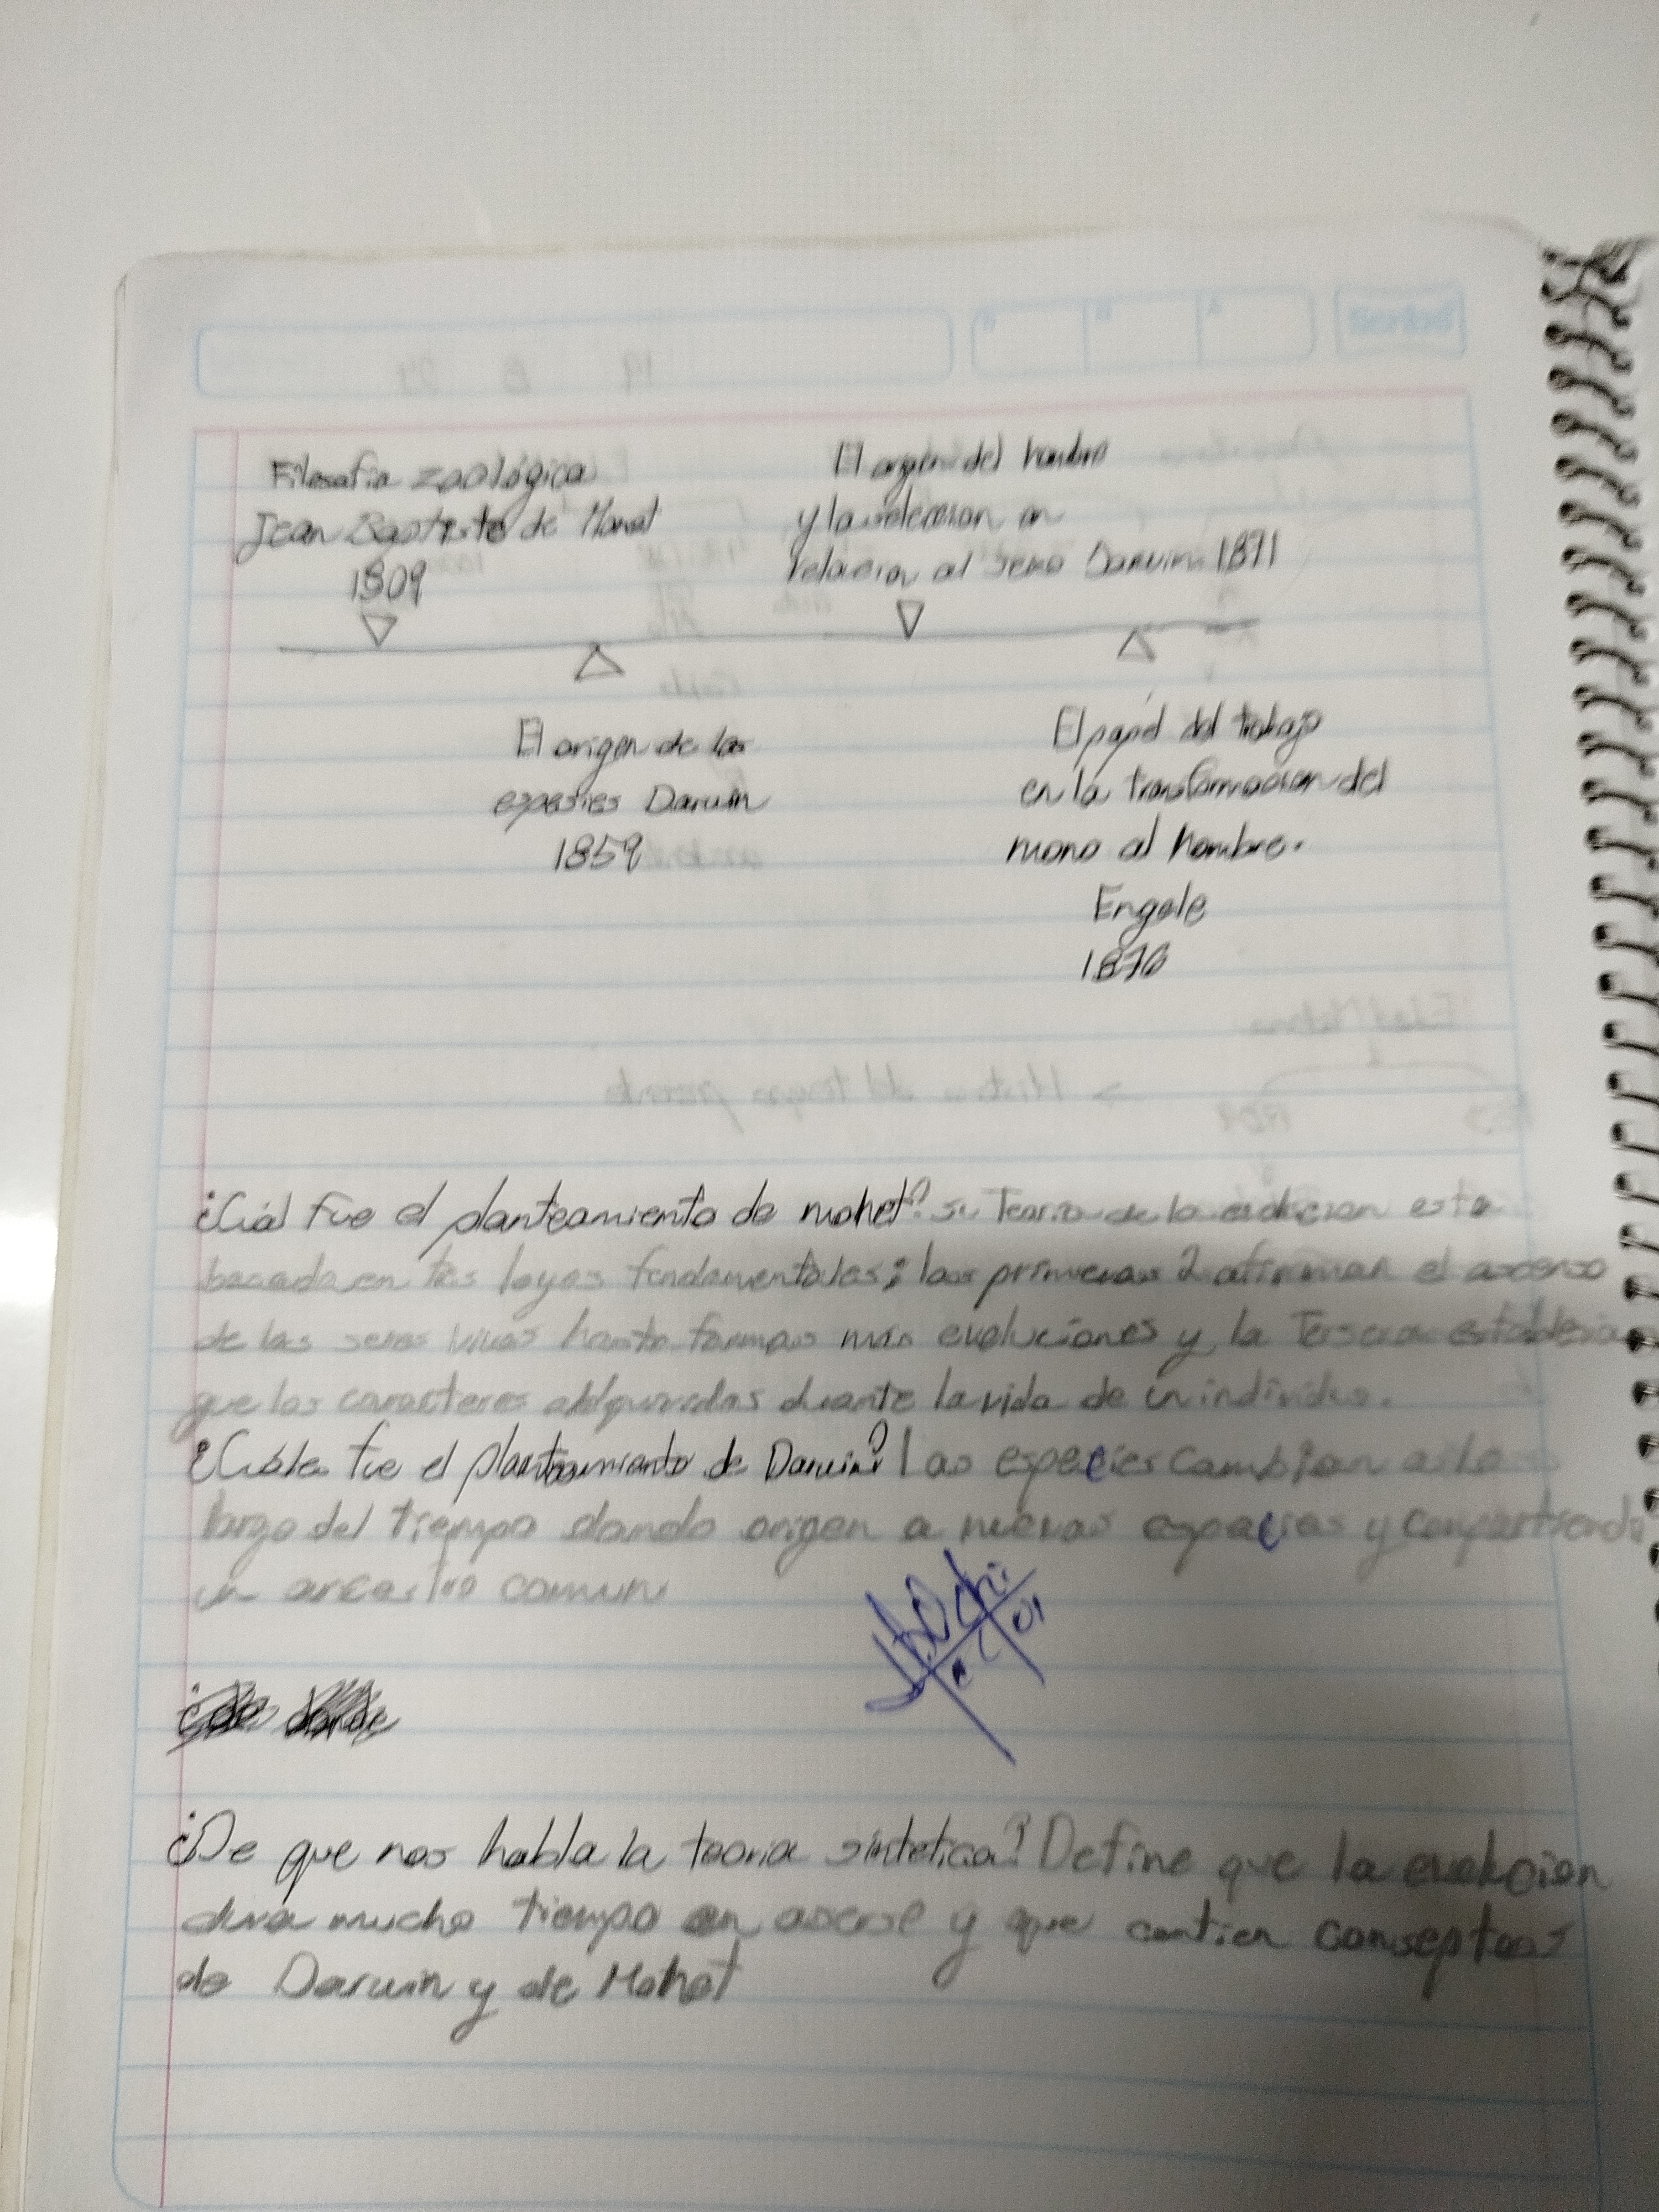 Filosofia zoológica
Jean Baptiste de Monet
1809
El origen del hombre
y la seleccion en
relacion al sexo Darwin 1871
El origen de las
espesies Darwin
1859
El papel del trabajo
en la transformacion del
mono al hombre.
Engels
1876
¿Cuál fue el planteamiento de mohet? su Teoria de la evolucion esta
basada en tres leyes fundamentales; las primeras 2 afirman el asenso
de los seres vivos hasta formas más evoluciones y la Tersera establesia
que los caracteres adquiridos durante la vida de un individuo.
¿Cuáles fue el planteamiento de Darwin? Las especies cambian a lo
largo del tiempo dando origen a nuevas especies y compartiendo
un ancestro comun
¿De que nos habla la teoria sintetica? Define que la evolucion
dura mucho tiempo en aserse y que contien conseptos
de Darwin y de Mohet